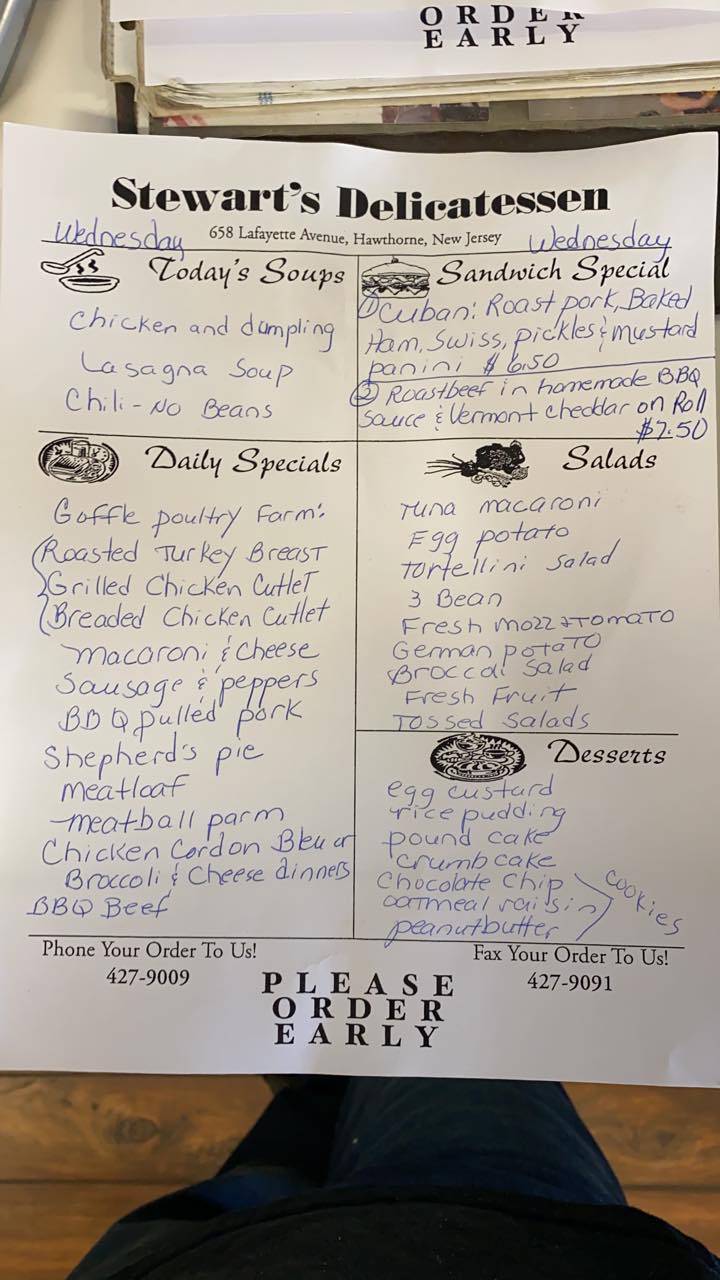 ORDER
EARLY
Stewart's Delicatessen
658 Lafayette Avenue, Hawthorne, New Jersey
Wednesday
Wednesday
Today's Soups
Chicken and dumpling
Lasagna Soup
Chili - No Beans
Sandwich Special
① Cuban: Roast pork, Baked
Ham, Swiss, pickles & mustard
panini $6.50
② Roastbeef in homemade BBQ
Sauce & Vermont cheddar on Roll
$7.50
Daily Specials
Goffle poultry Farm:
Roasted Turkey Breast
Grilled Chicken Cutlet
Breaded Chicken Cutlet
macaroni & cheese
Sausage & peppers
BBQ pulled pork
Shepherd's pie
meatloaf
meatball parm
Chicken Cordon Bleu or
Broccoli & Cheese dinners
BBQ Beef
Salads
Tuna macaroni
Egg potato
Tortellini Salad
3 Bean
Fresh mozz + Tomato
German potato
Broccoli Salad
Fresh Fruit
Tossed Salads
Desserts
egg custard
rice pudding
pound cake
crumb cake
Chocolate Chip
oatmeal raisin
peanutbutter
cookies
Phone Your Order To Us!
427-9009
PLEASE
ORDER
EARLY
Fax Your Order To Us!
427-9091